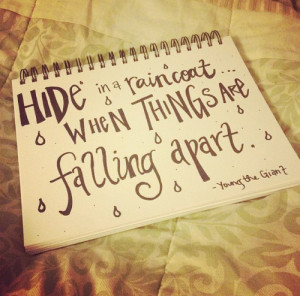 HIDE in a raincoat...
WHEN THINGS ARE
falling apart.
- Young the Giant